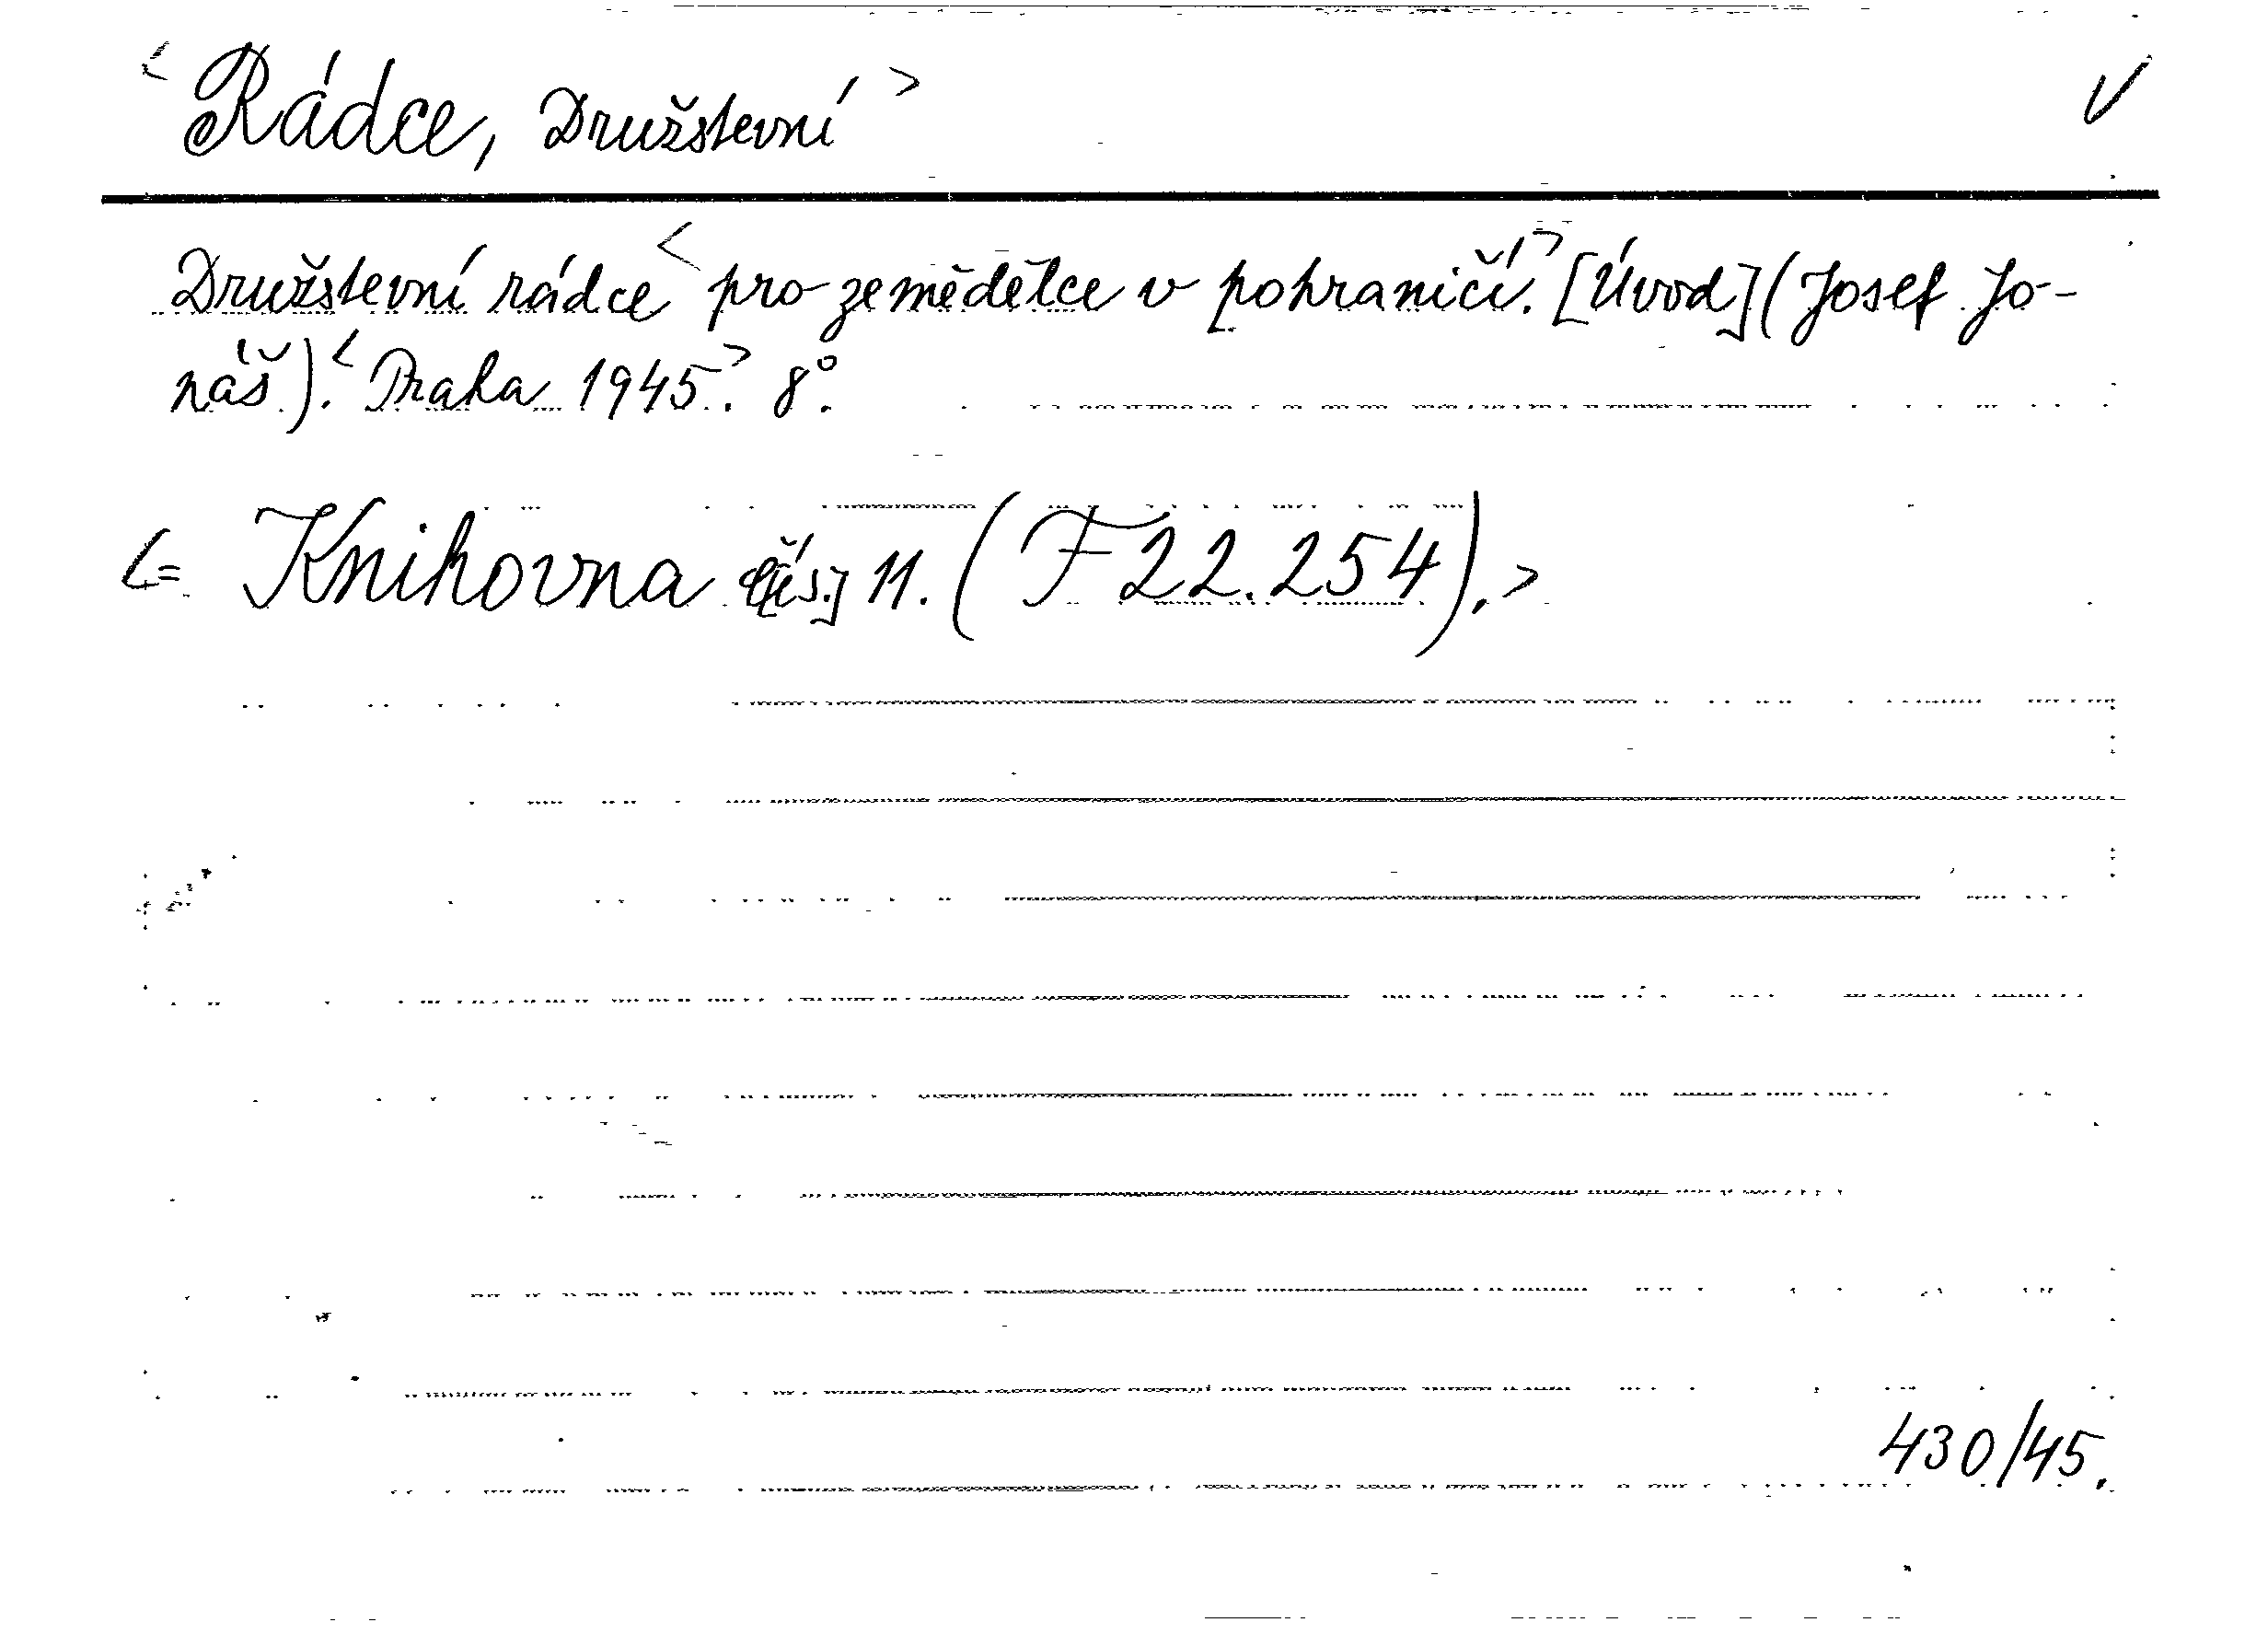 <Rádce, Družstevní> V
Družstevní rádce <pro zemědělce v pohraničí.> [Úvod] (Josef Jo-
náš). <Praha 1945.> 8°.
<= Knihovna 11. (F 22.254).>
430/45.